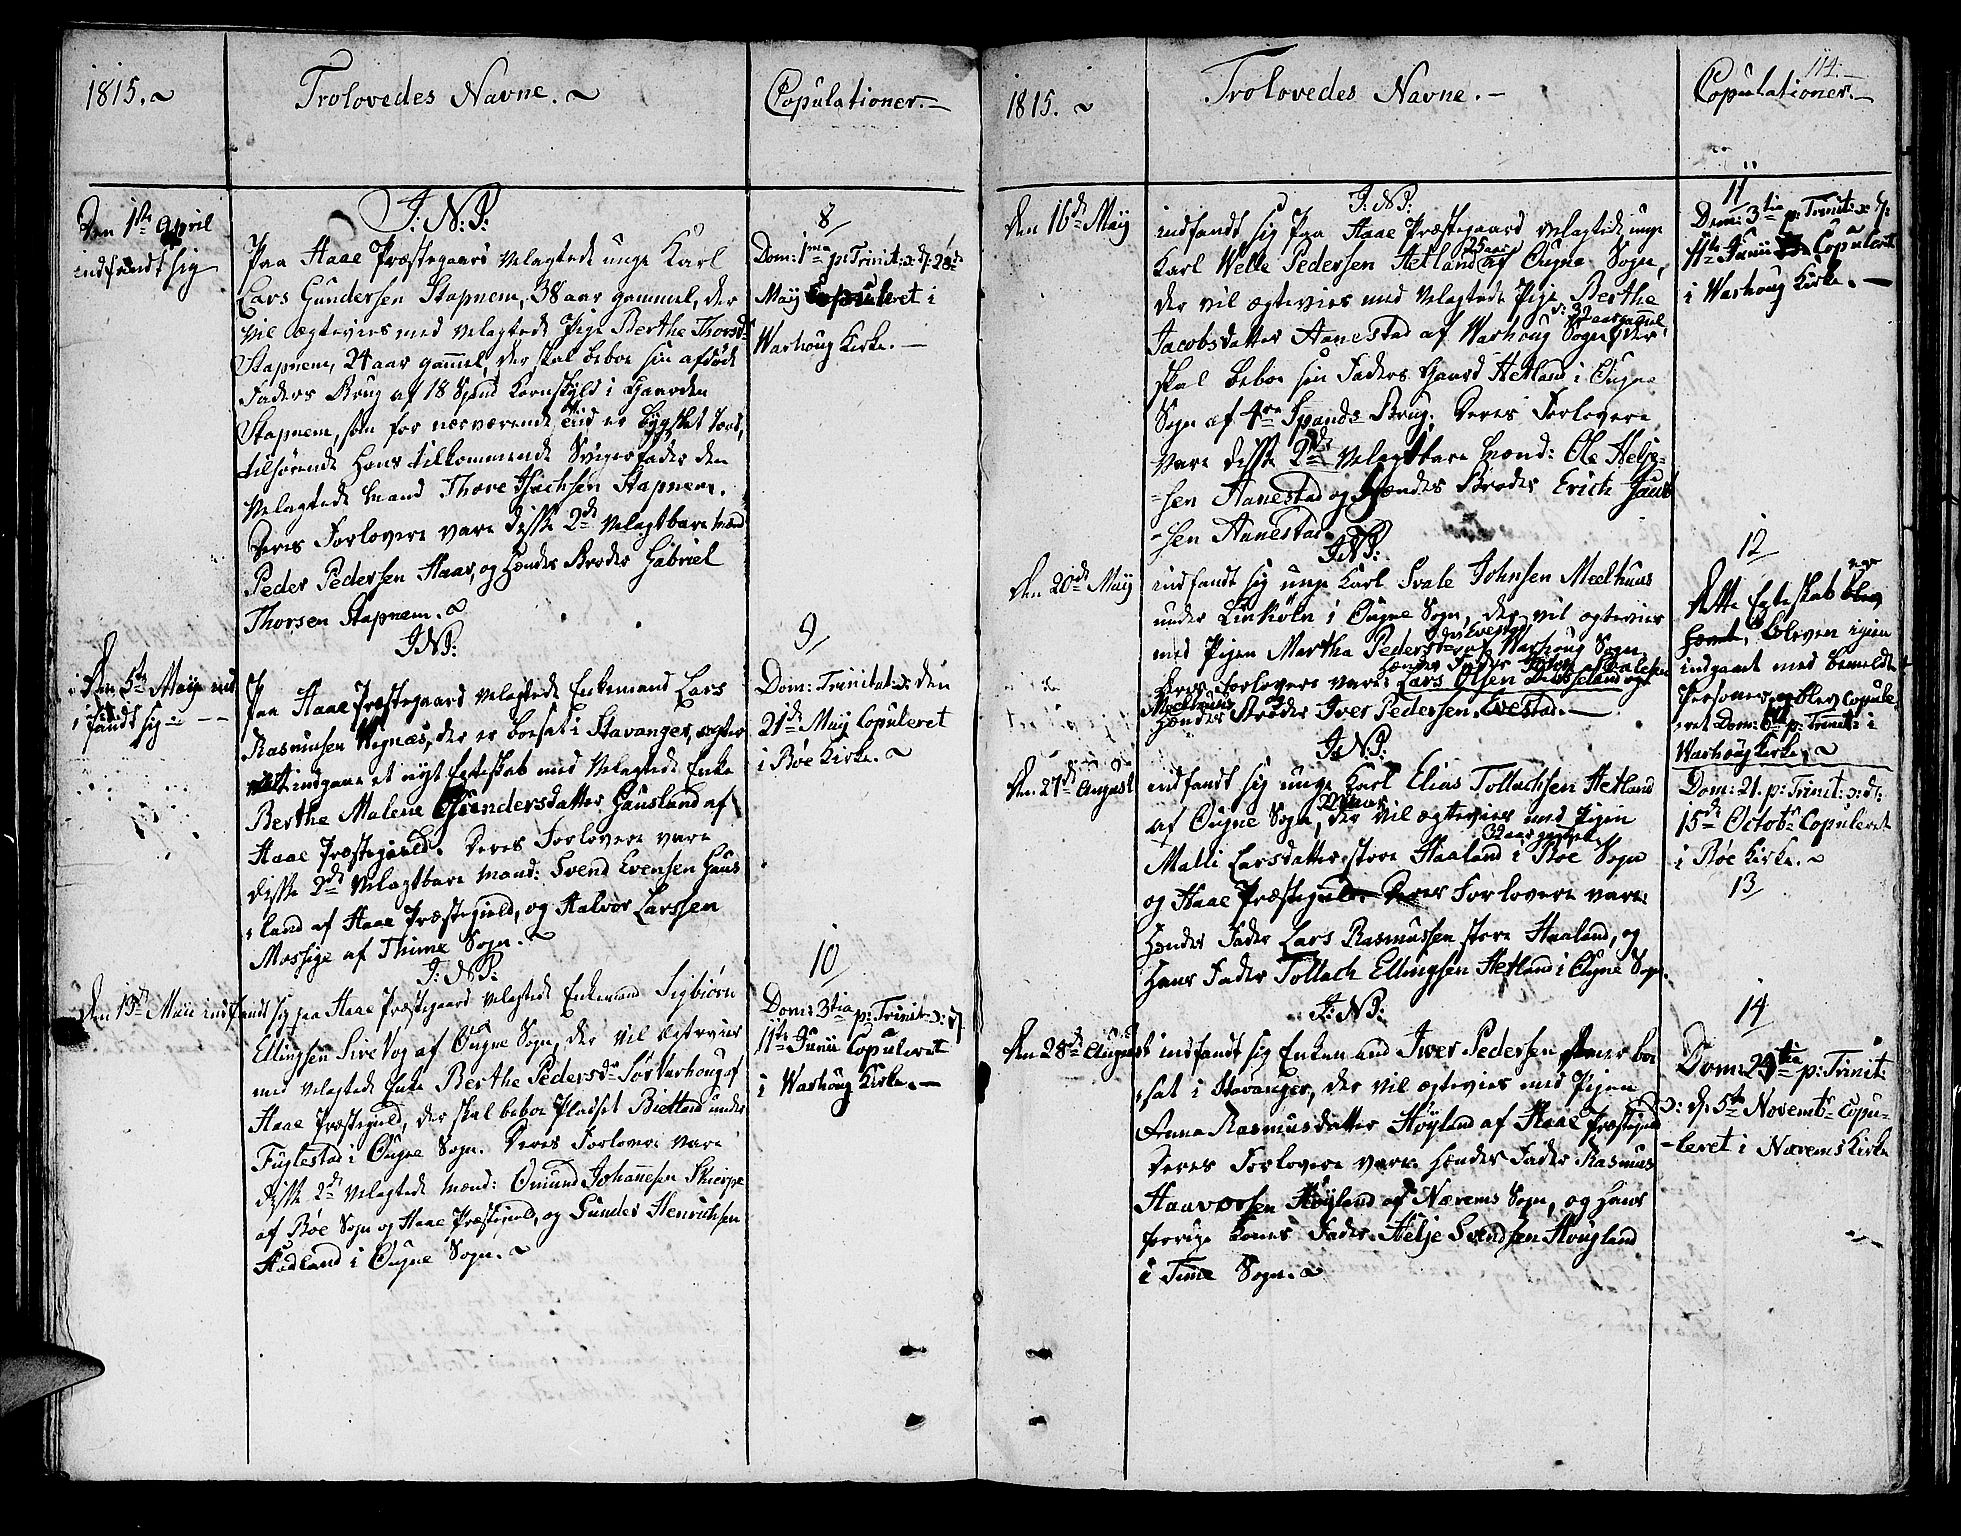 1815.
Trolovedes Navne.
Copulationer.
Den 1ste April
indfandt sig
J: N: P:
Paa Haae Præstegaard Velagtede unge Karl
Lars Gundersen Stapnem, 38 aar gammel, der
vil ægtevies med Velagtede Pige Berthe Thorsdr
Stapnem, 24 aar gammel, der skal beboe sin afdøde
Faders Brug af 18 Spand Kornskyld i Gaarden
Stapnem, som for nærværende Tid er bygslet bort,
tilhørende Hans tilkommende Svigerfader den
Velagtede Mand Thore Isachsen Stapnem.
Deres Forlovere vare disse 2de Velagtbare Mænd
Peder Pedersen Haar, og Hendes Broder Gabriel
Thorsen Stapnem.
8
Dom: 1ma p: Trinit: ɔ: d: 28de
Maij Copuleret i
Warhoug Kirke.
Den 5te Maij ind
fandt sig
J: N: P:
Paa Haae Præstegaard Velagtede Enkemand Lars
Rasmusen Vignæs, der er boesat i Stavanger, agter
at indgaae et nyt Egteskab med Velagtede Enke
Berthe Malene Gundersdatter Hausland af
Haae Præstegield. Deres Forlovere vare
disse 2de Velagtbare Mænd: Svend Evensen Haus
land af Haae Præstegield, og Halvor Larssen
Mossige af Thime Sogn.
9
Dom: Trinitat: ɔ: den
21de Maij Copuleret
i Bøe Kirke.
J: N: P:
Den 13de Maii indfandt sig paa Haae Præstegaard Velagtede Enkemand Sigbiørn
Ellingsen Sirevog af Ougne Sogn, der vil ægtevies
med Velagtede Enke Berthe Pedersdr Sør Varhoug af
Haae Præstegield, der skal beboe Pladset Bietland under
Fuglestad i Ougne Sogn. Deres Forlovere vare
disse 2de Velagtede Mænd: Omund Johannesen Skierpe
af Bøe Sogn og Haae Præstegield, og Gunder Henrichsen
Hadland i Ougne Sogn.
10
Dom: 3tia p: Trinit: ɔ: d.
11te Junii Copuleret
i Warhoug Kirke.
114.
1815.
Trolovedes Navne.
Copulationer.
Den 16de Maij
J: N: P:
indfandt sig Paa Haae Præstegaard Velagtede unge
Karl Welle Pedersen Hetland 25 aar af Ougne Sogn,
der vil ægtevies med Velagtede Pige Berthe
Jacobsdatter Aanestad af Warhoug Sogn 32 aar gammel, der
skal beboe sin Faders Gaard Hetland i Ougne
Sogn af 4re Spands Brug. Deres Forlovere
vare disse 2de Velagtbare Mænd: Ole Helje-
sen Aanestad og Hændes Broder Erich
sen Aanestad
11
Dom: 3tia p: Trinit: ɔ: d:
11te Junii Copuleret
i Warhoug Kirke.
Den 20de Maij
J: N: P:
indfandt sig unge Karl Svale Johnsen Meelhuus
under i Ougne Sogn, der vil ægtevies
med Pigen Martha Pedersdatter Evestad af Warhoug Sogn.
Deres Forlovere vare: Lars Olsen og
Meelhuus
Hændes Broder Iver Pedersen Evestad.
12
Dette Egteskab blev
hævet, bleven igien
indgaaet med bemeldte
Personer, og blev Copule
ret Dom: 6te p: Trinit: i
Warhoug Kirke.
Den 27de August
J: N: P:
indfandt sig unge Karl Elias Tollachsen Hetland
af Ougne Sogn, der vil ægtevies med Pigen
Malli Larsdatter store Haaland 32 aar gammel i Bøe Sogn
og Haae Præstegield. Deres Forlovere vare:
Hændes Fader Lars Rasmussen store Haaland, og
Hans Fader Tollach Ellingsen Hetland i Ougne Sogn.
Dom: 21. p: Trinit: ɔ: d:
15de Octobr Copuleret
i Bøe Kirke.
13
Den 28de August
J: N: P:
indfandt sig Enkemand Iver Pedersen boe
sat i Stavanger, der vil ægtevies med Pigen
Anna Rasmusdatter Høyland af Haae Præstegield
Deres Forlovere vare Hændes Fader Rasmus
Haavorsen Høyland af Nærems Sogn, og Hans
forrige Kones Fader Helje Svendsen Hougland
i Time Sogn.
14
Dom: 24tia p: Trinit:
ɔ: d. 5te Novembr Copu-
leret i Nærems Kirke